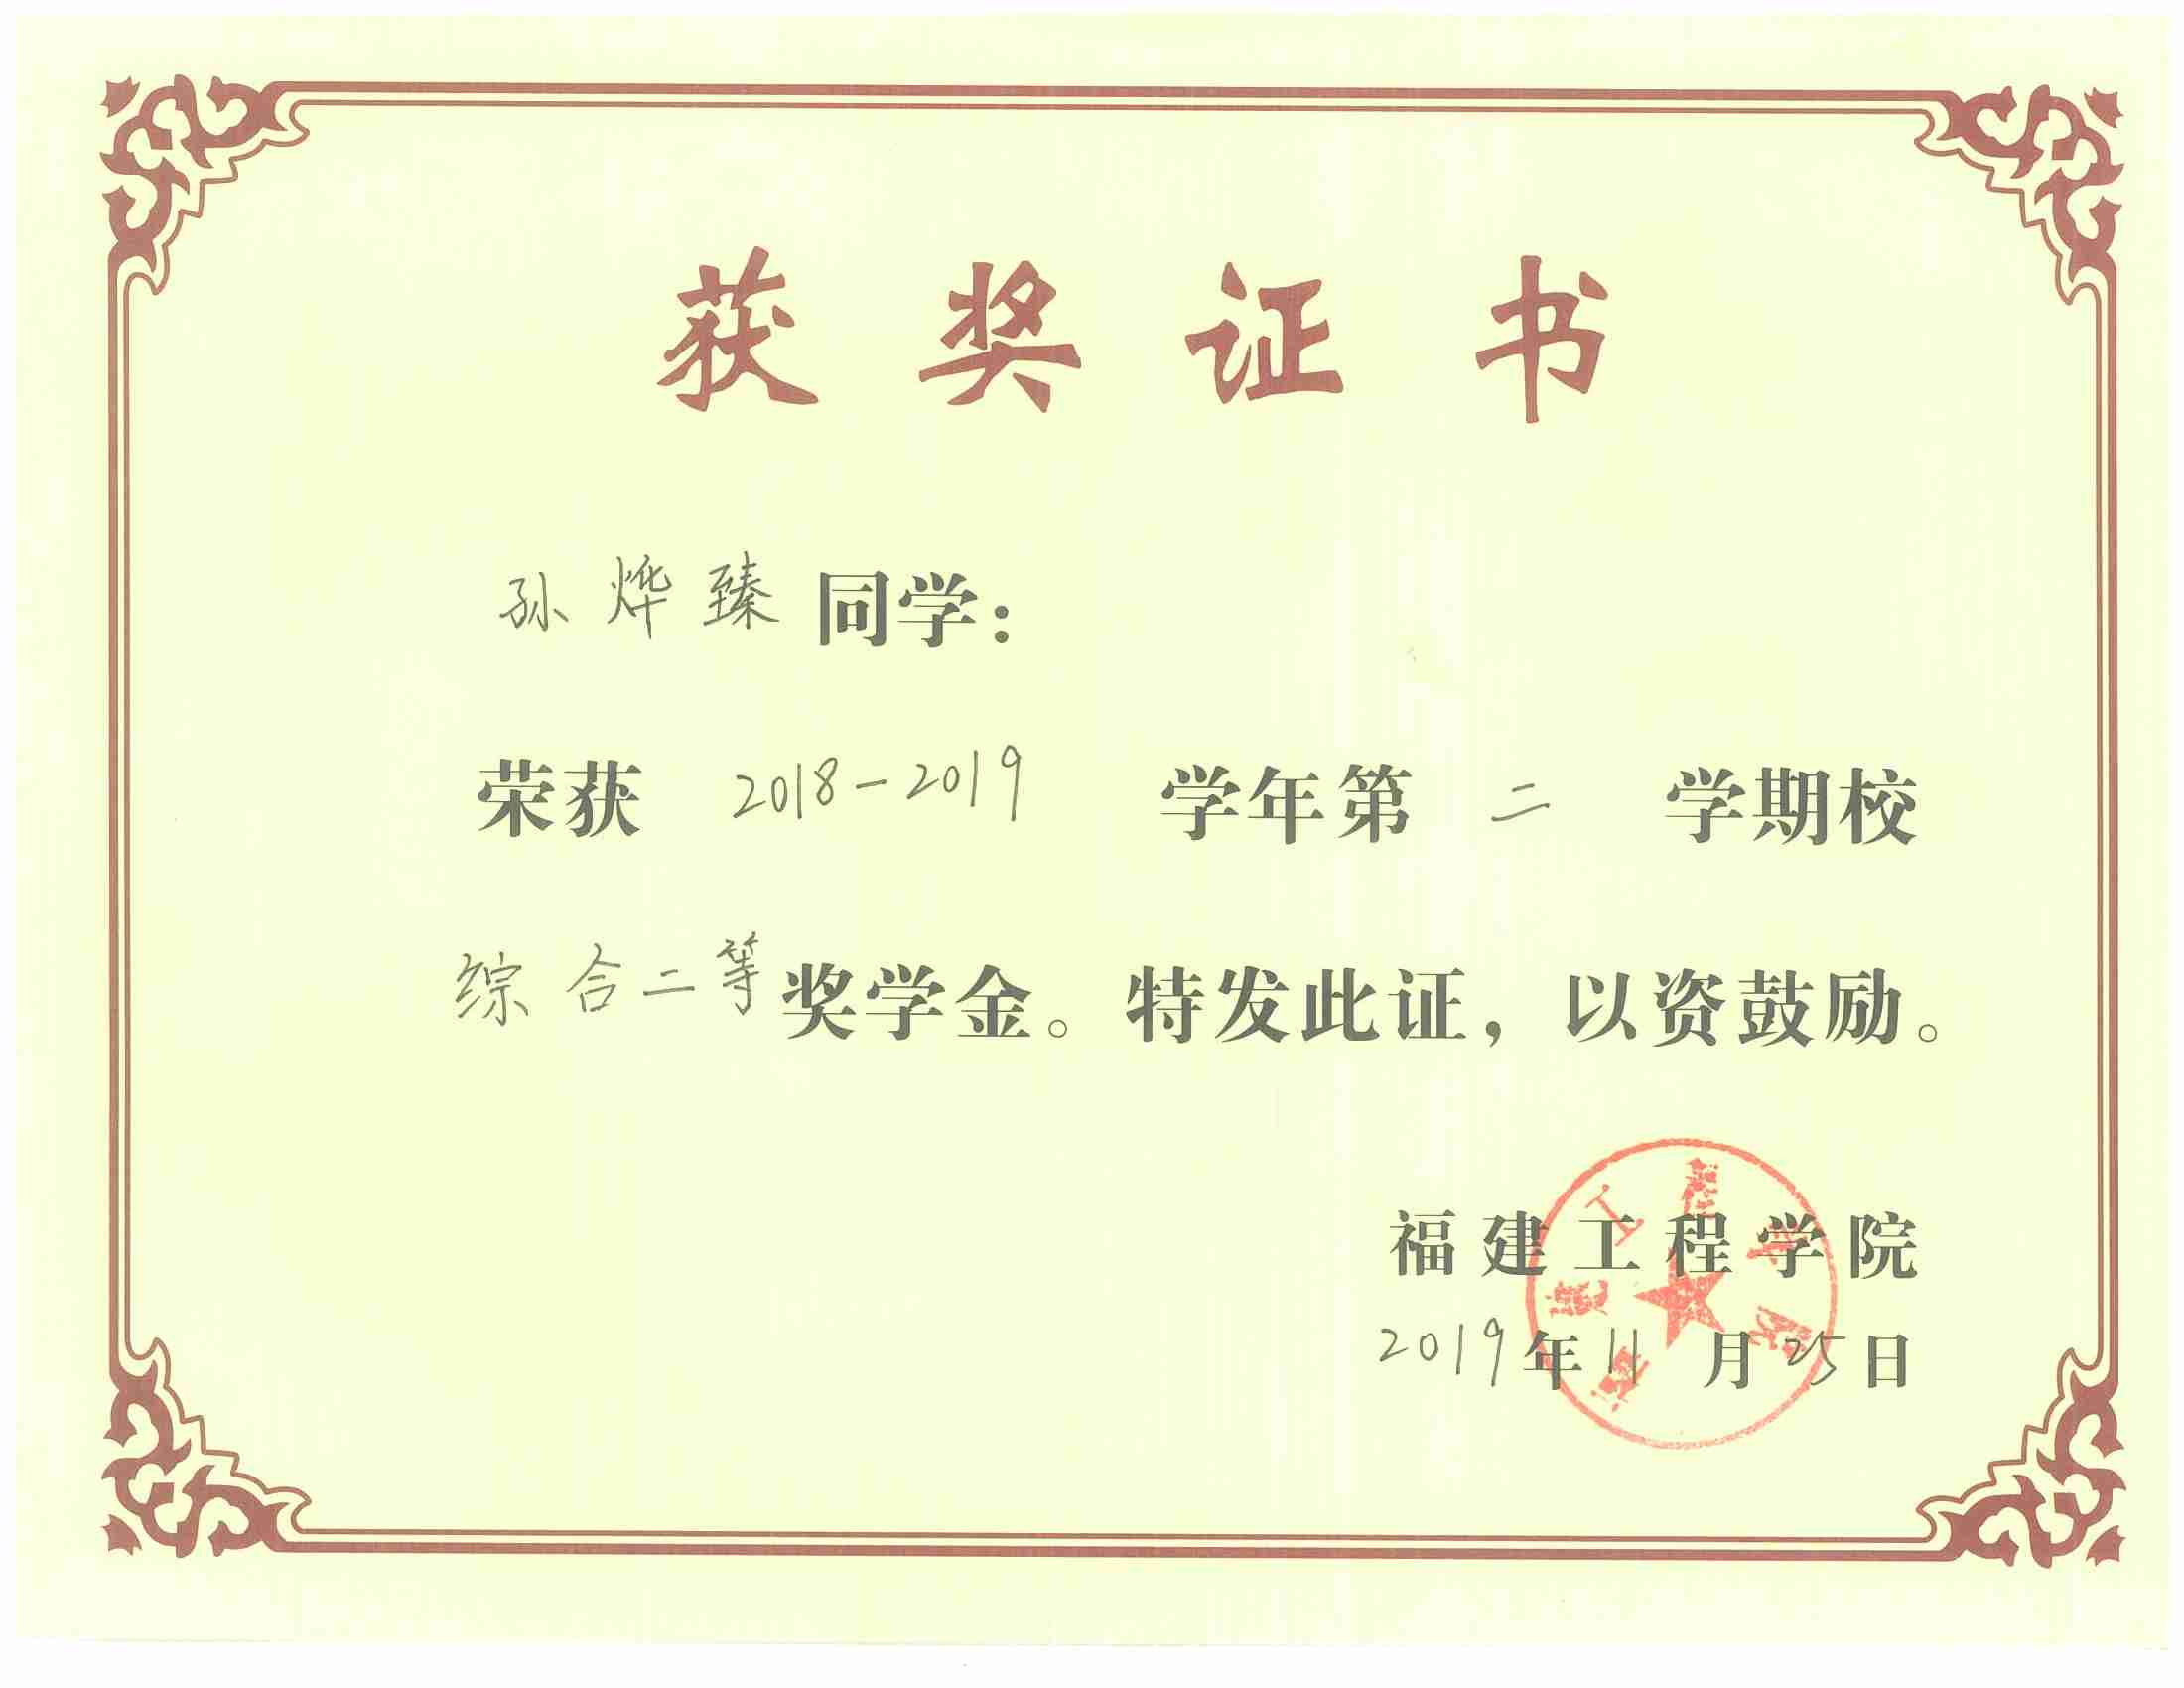 获奖证书
孙烨臻同学：
荣获 2018-2019 学年第 二 学期校
综合二等奖学金。特发此证，以资鼓励。
福建工程学院
2019年11月25日
福建工程学院